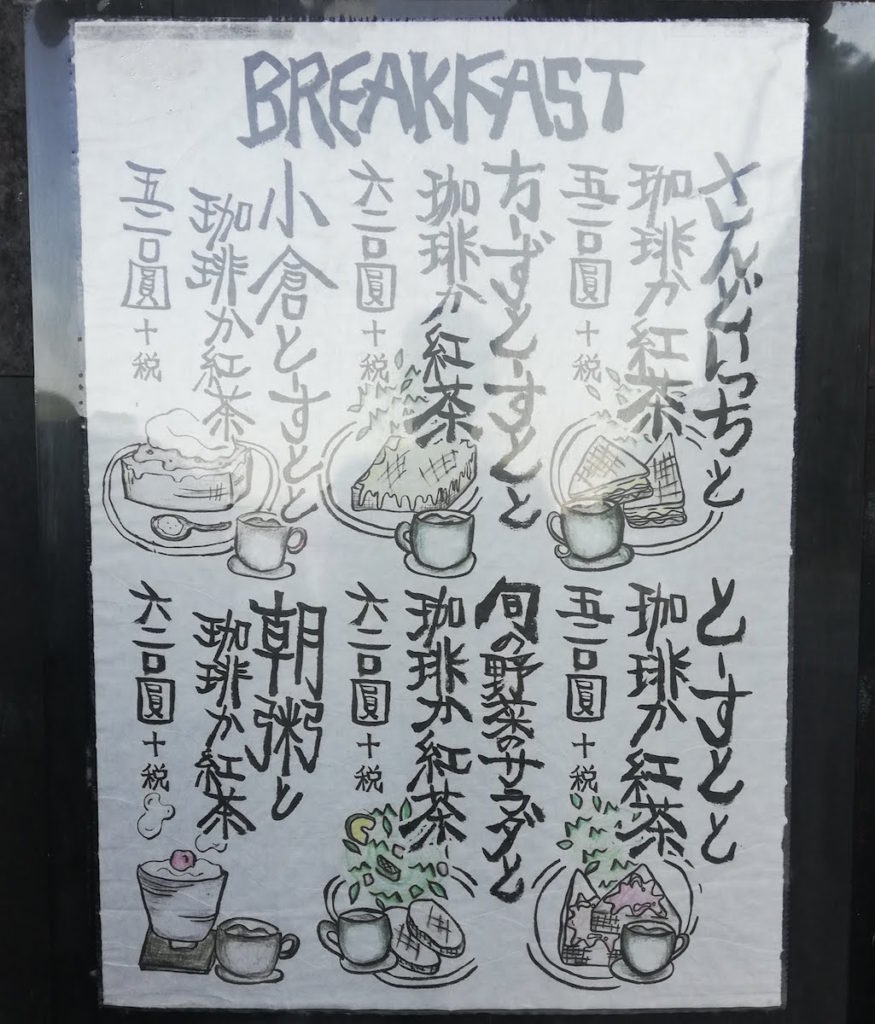 BREAKFAST
さんどいっちと
珈琲か紅茶
五二〇圓十税
ちーずとーすとと
珈琲か紅茶
六二〇圓十税
小倉とーすとと
珈琲か紅茶
五二〇圓十税
とーすとと
珈琲か紅茶
五二〇圓十税
旬の野菜のサラダと
珈琲か紅茶
六二〇圓十税
朝粥と
珈琲か紅茶
六二〇圓十税